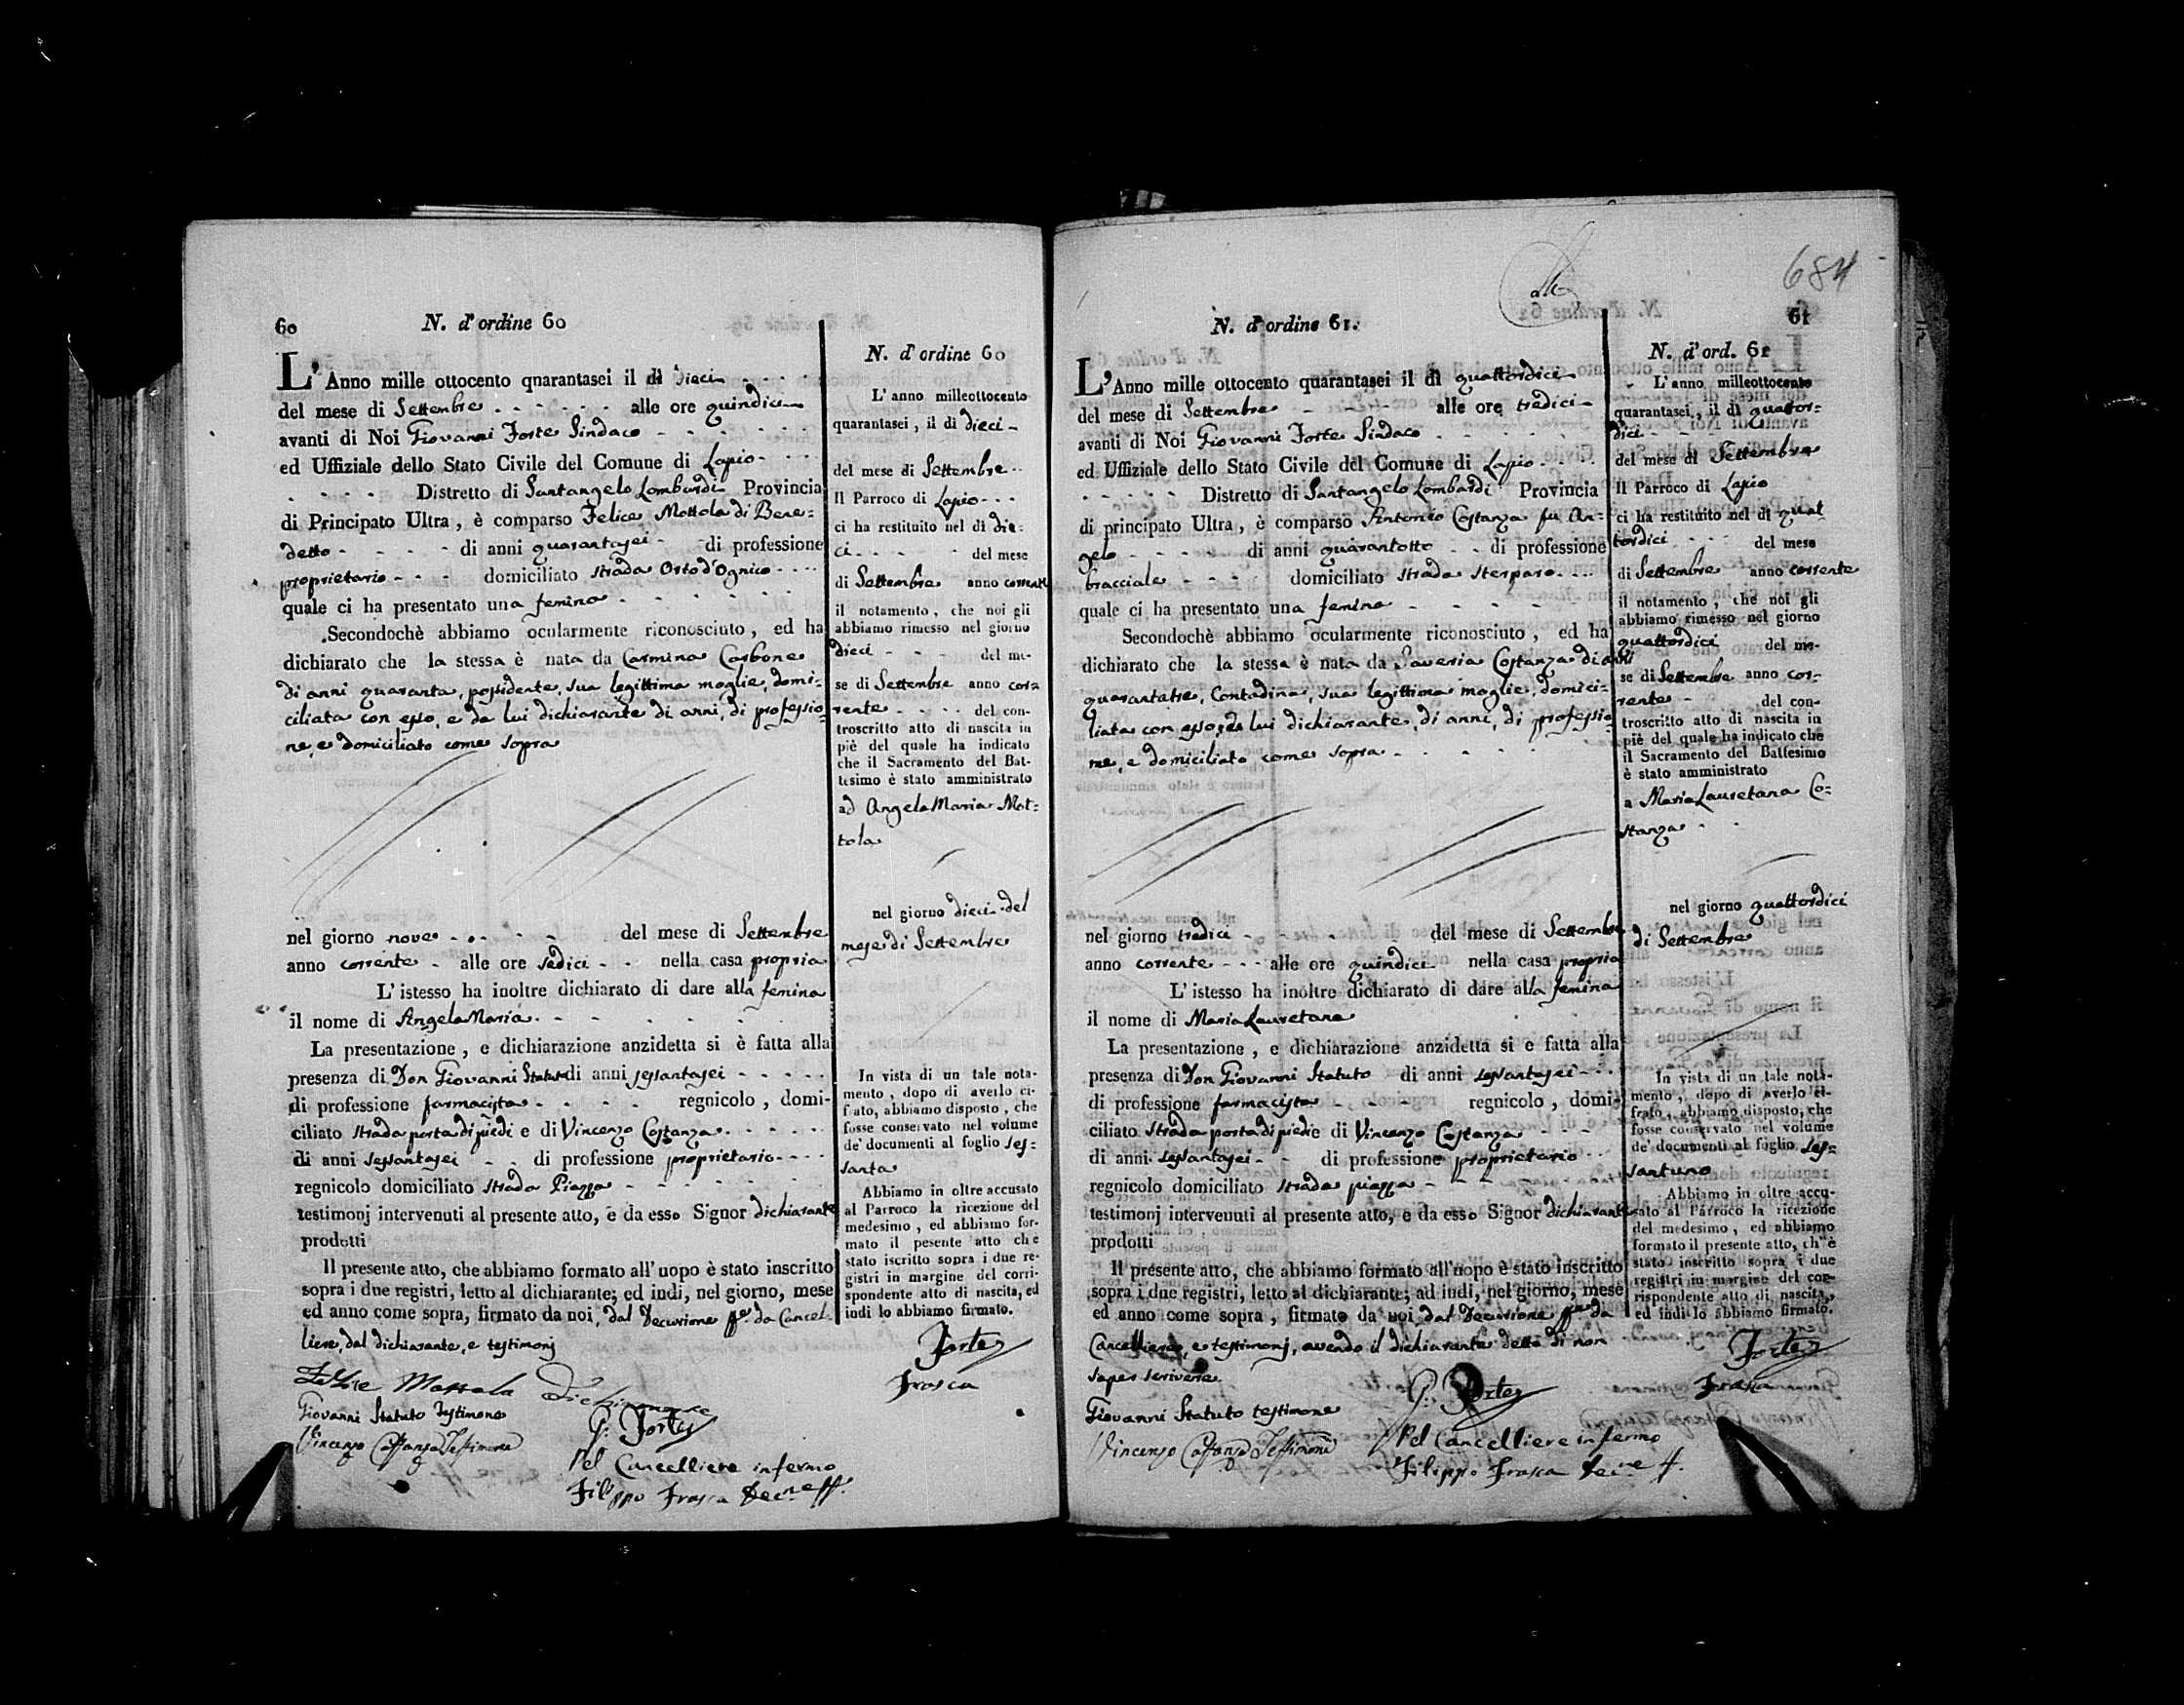 60
N. d'ordine 60
L'Anno mille ottocento qnarantasei il di dieci
del mese di Settembre alle ore quindici
avanti di Noi Giovanni Forte Sindaco
ed Uffiziale dello Stato Civile del Comune di Lapio
Distretto di Santangelo Lombardi Provincia
di Principato Ultra, è comparso Felice Mottola di Bene=
detto di anni quarantasei di professione
proprietario domiciliato Strada Orto d'Ognico
quale ci ha presentato una femina
Secondochè abbiamo ocularmente riconosciuto, ed ha
dichiarato che la stessa è nata da Carmina Carbone
di anni quaranta, possidente, sua legittima moglie, domi=
ciliata con esso, e da lui dichiarante di anni, di professio=
ne, e domiciliato come sopra
nel giorno nove del mese di Settembre
anno corrente alle ore sedici nella casa propria
L'istesso ha inoltre dichiarato di dare alla femina
il nome di AngelaMaria
La presentazione, e dichiarazione anzidetta si è fatta alla
presenza di Don Giovanni Statuto di anni sessantasei
di professione farmacista regnicolo, domi-
ciliato Strada porta di piedi e di Vincenzo Costanza
di anni sessantasei di professione proprietario
regnicolo domiciliato Strada Piazza
testimonj intervenuti al presente atto, e da esso Signor dichiarante
prodotti
Il presente atto, che abbiamo formato all'uopo è stato inscritto
sopra i due registri, letto al dichiarante; ed indi, nel giorno, mese
ed anno come sopra, firmato da noi, dal Decurione ff.e da Cancel=
liere, dal dichiarante, e testimonj
Felice Mottola Dichiarante
Giovanni Statuto Testimone
G. Forte
Vincenzo Costanza Testimone
Pel Cancelliere infermo
Filippo Frasca Dec.ne ff.
N. d'ordine 60
L'anno milleottocento
quarantasei, il di dieci
del mese di Settembre
Il Parroco di Lapio
ci ha restituito nel di die=
ci del mese
di Settembre anno corrente
il notamento, che noi gli
abbiamo rimesso nel giorno
dieci del me-
se di Settembre anno cor=
rente del con-
troscritto atto di nascita in
piè del quale ha indicato
che il Sacramento del Bat-
tesimo è stato amministrato
ad AngelaMaria Mot=
tola
nel giorno dieci del
mese di Settembre
In vista di un tale nota-
mento, dopo di averlo ci-
frato, abbiamo disposto, che
fosse conservato nel volume
de' documenti al foglio ses=
santa
Abbiamo in oltre accusato
al Parroco la ricezione del
medesimo, ed abbiamo for-
mato il pesente atto ch è
stato iscritto sopra i due re-
gistri in margine del corri-
spondente atto di nascita, ed
indi lo abbiamo firmato.
Forte
Frasca
684
61
N. d'ordine 61.
L'Anno mille ottocento quarantasei il dì quattordici
del mese di Settembre alle ore tredici
avanti di Noi Giovanni Forte Sindaco
ed Uffiziale dello Stato Civile del Comune di Lapio
Distretto di Santangelo Lombardi Provincia
di principato Ultra, è comparso Antonio Costanza fu An=
gelo di anni quarantotto di professione
bracciale domiciliato Strada Sterparo
quale ci ha presentato una femina
Secondochè abbiamo ocularmente riconosciuto, ed ha
dichiarato che la stessa è nata da Saveria Costanza di anni
quarantatre, Contadina, sua legittima moglie, domici=
liata con esso, e da lui dichiarante, di anni, di professio
ne, e domiciliato come sopra
nel giorno tredici del mese di Settembre
anno corrente alle ore quindici nella casa propria
L'istesso ha inoltre dichiarato di dare alla femina
il nome di MariaLauretana
La presentazione, e dichiarazione anzidetta si e fatta alla
presenza di Don Giovanni Statuto di anni sessantasei
di professione farmacista regnicolo, domi-
ciliato Strada porta di piedi e di Vincenzo Costanza
di anni sessantasei di professione proprietario
regnicolo domiciliato Strada piazza
testimonj intervenuti al presente atto, e da esso Signor dichiarante
prodotti
Il presente atto, che abbiamo formato all'uopo è stato inscritto
sopra i due registri, letto al dichiarante; ad indi, nel giorno, mese
ed anno come sopra, firmato da noi dal Decurione ff.e da
Cancelliere, e testimonj, avendo il dichiarante detto di non
saper scrivere
G. Forte
Giovanni Statuto testimone
Vincenzo Costanza Testimone
Pel Cancelliere infermo
Filippo Frasca Dec.ne ff.
N. d'ord. 61
L'anno milleottocento
quarantasei, il dì quattor=
dici
del mese di Settembre
Il Parroco di Lapio
ci ha restituito nel di quat
tordici del mese
di Settembre anno corrente
il notamento, che noi gli
abbiamo rimesso nel giorno
quattordici del me-
se di Settembre anno cor=
rente del con-
troscritto atto di nascita in
piè del quale ha indicato che
il Sacramento del Battesimo
è stato amministrato
a MariaLauretana Co=
stanza
nel giorno quattordici
di Settembre
In vista di un tale nota-
mento, dopo di averlo ci-
frato, abbiamo disposto, che
fosse conservato nel volume
de' documenti al foglio ses=
santuno
Abbiamo in oltre accu-
sato al Parroco la ricezione
del medesimo, ed abbiamo
formato il presente atto, ch' è
stato inscritto sopra i due
registri in margine del cor-
rispondente atto di nascita,
ed indi lo abbiamo firmato.
Forte
Frasca